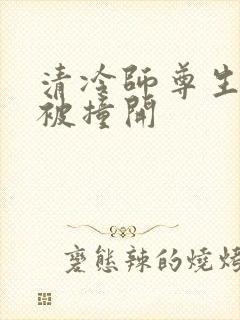 清冷師尊生
被撞開
變態辣的燒烤